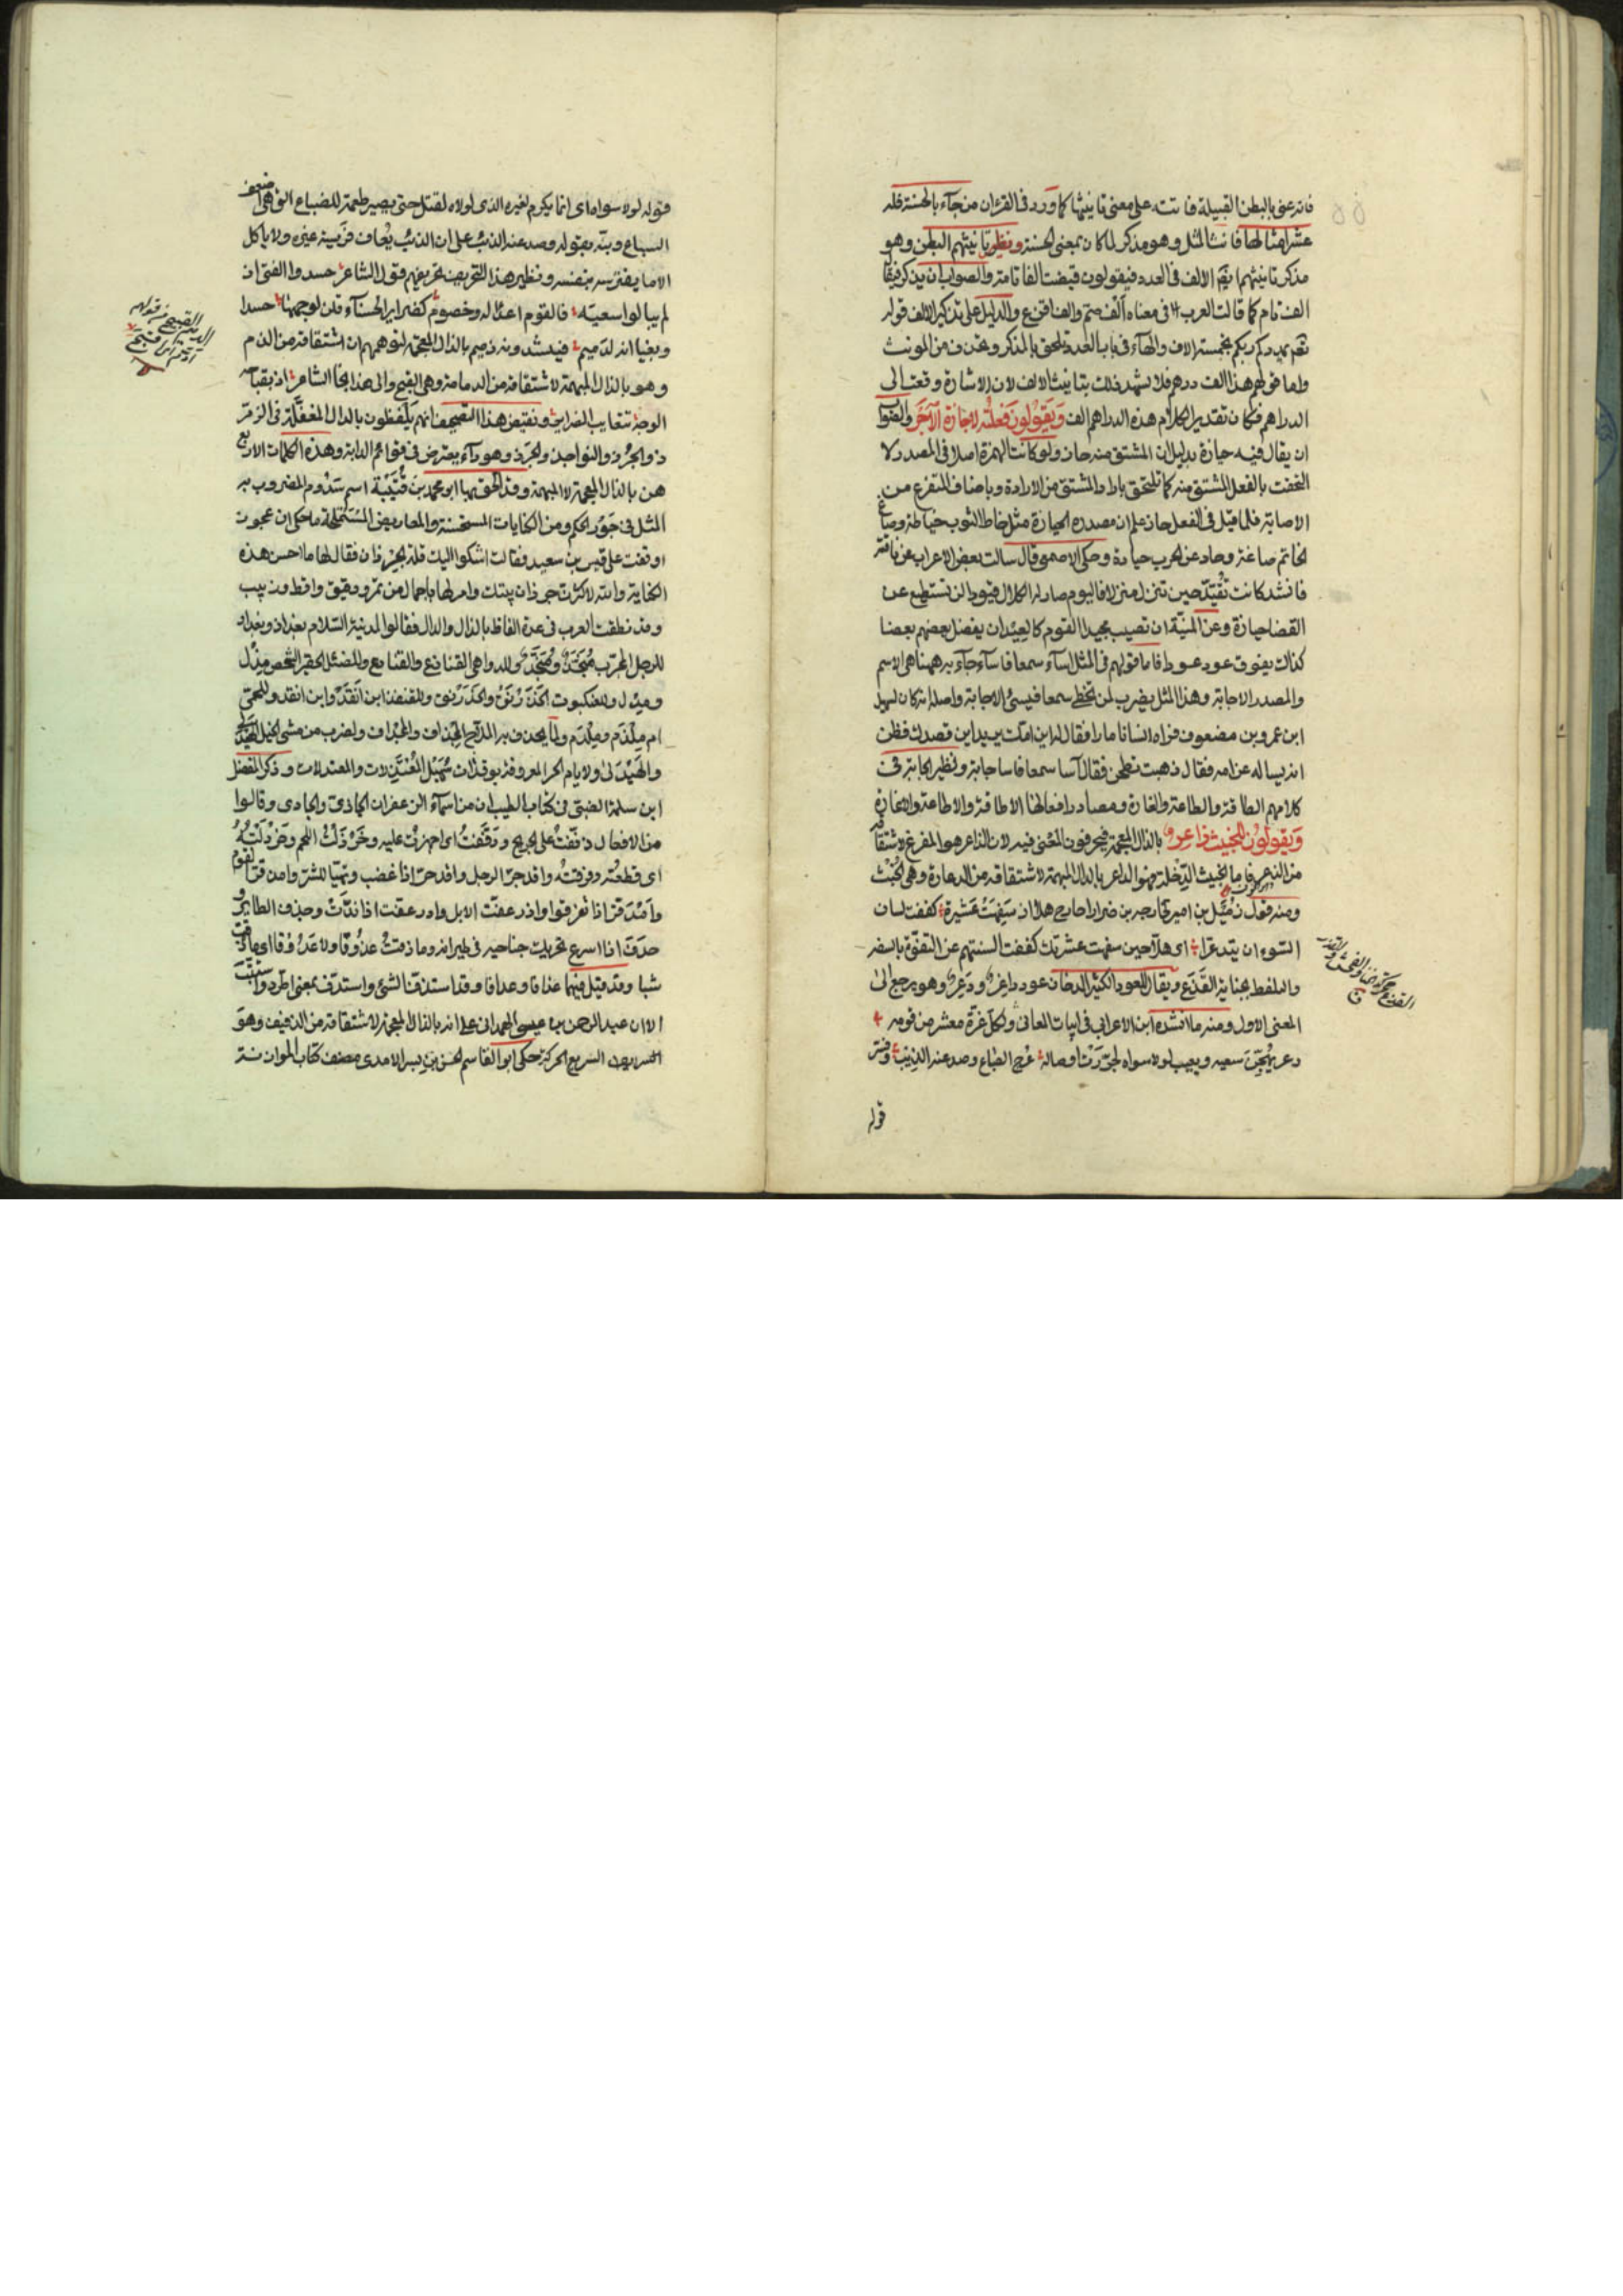 فانه عنى بالبطن القبيلة فانثه على معنى تانيثها كما ورد فى القرءان من جآء بالحسنة فله
عشر امثالها فانث المثل وهو مذكر لما كان بمعنى الحسنة ونظير تانيثهم البطن وهو
مذكر تانيثهم ايضا الالف فى العدد فيقولون قبضت الفا تامة والصواب ان يذكر فيقال
الف تام كما قالت العرب فى معناه الف صتم والف اقرع والدليل على تذكير الالف قوله
تعم يمددكم ربكم بخمسة الاف والهآء فى باب العدد تلحق بالمذكر وتحذف من المونث
واما قولهم هذه الف درهم فلا يشهد ذلك بتانيث الالف لان الاشارة وقعت الى
الدراهم فكان تقدير الكلام هذه الدراهم الف ويقولون فعلته لاحازة الاجر والصواب
ان يقال فيه حيازة بدليل ان المشتق منه حاز ولو كانت الهمزة اصلا فى المصدر لا
لتحقت بالفعل المشتق منه كما تلتحق باراد المشتق من الارادة وباصاف المتفرع من
الاصابة فلما قيل فى الفعل حاز علم ان مصدره الحيازة مثل خاط الثوب خياطة وصاغ
الخاتم صاغة وحاد عن الحرب حيادة وحكى الاصمعى قال سالت بعض الاعراب عن ناقته
فانشد كانت تقيد حين تنزل منزلا فاليوم صار لها الكلال قيودا لن تستطيع عن
القضا حيازة وعن المنية ان تصيب محيدا القوم كالعيدان يفضل بعضهم بعضا
كذاك يفوق عود عودا فاما قولهم فى المثل اسآء سمعا فاسآء جآءبه فههنا هى الاسم
والمصدر الاجابة وهذا المثل يضرب لمن يخطى سمعا فيسئ الاجابة واصله انه كان لسهيل
ابن عمرو بن مضعوف فراه انسانا مارا فقال له اين امك يريد اين قصدك فظن
انه يساله عن امه فقال ذهبت تطحن فقال اسا سمعا فاسا جابة ونظير الجابة فى
كلامهم الطاقة والطاعة والغارة ومصادر افعالها الاطاقة والاطاعة والاغارة
ويقولون للخبيث ذاعر بالذال المعجمة فيحرفون المعنى فيه لان الذاعر هو المفزع لاشتقاقه
من الذعر فاما الخبيث الدخلة فهو الداعر بالدال المبهمة لاشتقاقه من الدعارة وهى الخبث
ومنه قول زميل بن ابير لخارجة بن ضرار اخارج هلا اذ سفهت عشيرة كففت لسان
السوء ان يتدعرا اى هلا حين سفهت عشيرتك كففت السنتهم عن التفوه بالسفه
والتلفظ بجناية القذع ويقال للعود الكثير الدخان عود داعر ودعر وهو يرجع الى
المعنى الاول ومنه ما انشده ابن الاعرابى فى ابيات المعانى ولكل غرة معشر من قومه
دعر يهجن سعيه ويعيب لولا سواه لجررت اوصاله عرج الضباع وصد عنه الذيب وفسر
قوله
قوله لولا سواه اى انما يكرم لغيره الذى لولاه لقتل حتى يصير طعمة للضباع التى هى اضعف
السباع ونبه بقوله وصد عنه الذئب على ان الذئب يعاف فريسة غيره ولا ياكل
الا ما يفترسه بنفسه ونظير هذا التحريف تحريفهم قول الشاعر حسدوا الفتى ان
لم ينالوا سعيه فالقوم اعدا له وخصوم كضراير الحسنآء قلن لوجهها حسدا
وبغيا انه لدميم فينشدونه ذميم بالذال المعجمة لتوهمهم ان اشتقاقه من الذم
وهو بالدال المبهمة لاشتقاقه من الدمامة وهى القبح والى هذا نحا الشاعر اذ بقباحة
الوجه تتعايب الضراير ونقيض هذا التصحيف انهم يلفظون بالدال المغفلة فى الزمر
ذ والجرذ والنواجذ والجرذ وهو دآء يعترض فى قوائم الدابة وهذه الكلمات الاربع
هن بالذال المعجمة لا المبهمة وقد الحق بها ابو محمد بن قتيبة اسم سذوم المضروب به
المثل فى جور الحكم ومن الكنايات المستحسنة والمعاريض المستملحة ما حكى ان عجوزا
وقفت على قيس بن سعيد فقالت اشكوا اليك قلة الجرذان فقال لها ما احسن هذه
الكناية والله لاكثرن جرذان بيتك وامر لها باحمال من تمر ودقيق واقط وزبيب
وقد نطقت العرب فى عدة الفاظ بالذال والدال فقالوا لمدينة السلام بغداد وبغداذ
للرجل المجرب منجذ ومنجد وللدواهى القناذع والقنادع وللضئيل الحقير الشخص مذل
ومدل وللعنكبوت الخذرنق والخدرنق وللقنفذ ابن انقذ وابن انقد وللحمى
ام ملذم وملدم ولما يجدف به الملاح المجذاف والمجداف ولضرب من مشى الخيل الهيذبى
والهيدبى ولايام الحر المعروفة بوقدات سهيل المعتذلات والمعتدلات وذكر المفضل
ابن سلمة الضبى فى كتاب الطيب ان من اسمآء الزعفران الجاذى والجادى وقالوا
من الافعال ذففت على الجريح ودففت اى اجهزت عليه وخرذلت اللحم وخردلته
اى قطعته وفرقته واقذحر الرجل واقدحر اذا غضب وتهيا للشر وامذقر القوم
وامدقر اذا تفرقوا واذرعفت الابل وادرعفت اذا ندت وجذف الطاير
جدف اذا اسرع تحريك جناحيه فى طيرانه وما ذقت عذوفا ولا عدوفا اى ما ذقت
شيا وقد قيل فيهما عذافا وعدافا وقد استذف الشئ واستدف بمعنى اطرد واستتب
الا ان عبد الرحمن بن عيسى الهمدانى على انه بالذال المعجمة لاشتقاقه من الذفيف وهو
السريع الحركة حكى ابو القاسم الحسن بن بسر الامدى مصنف كتاب الموازنة